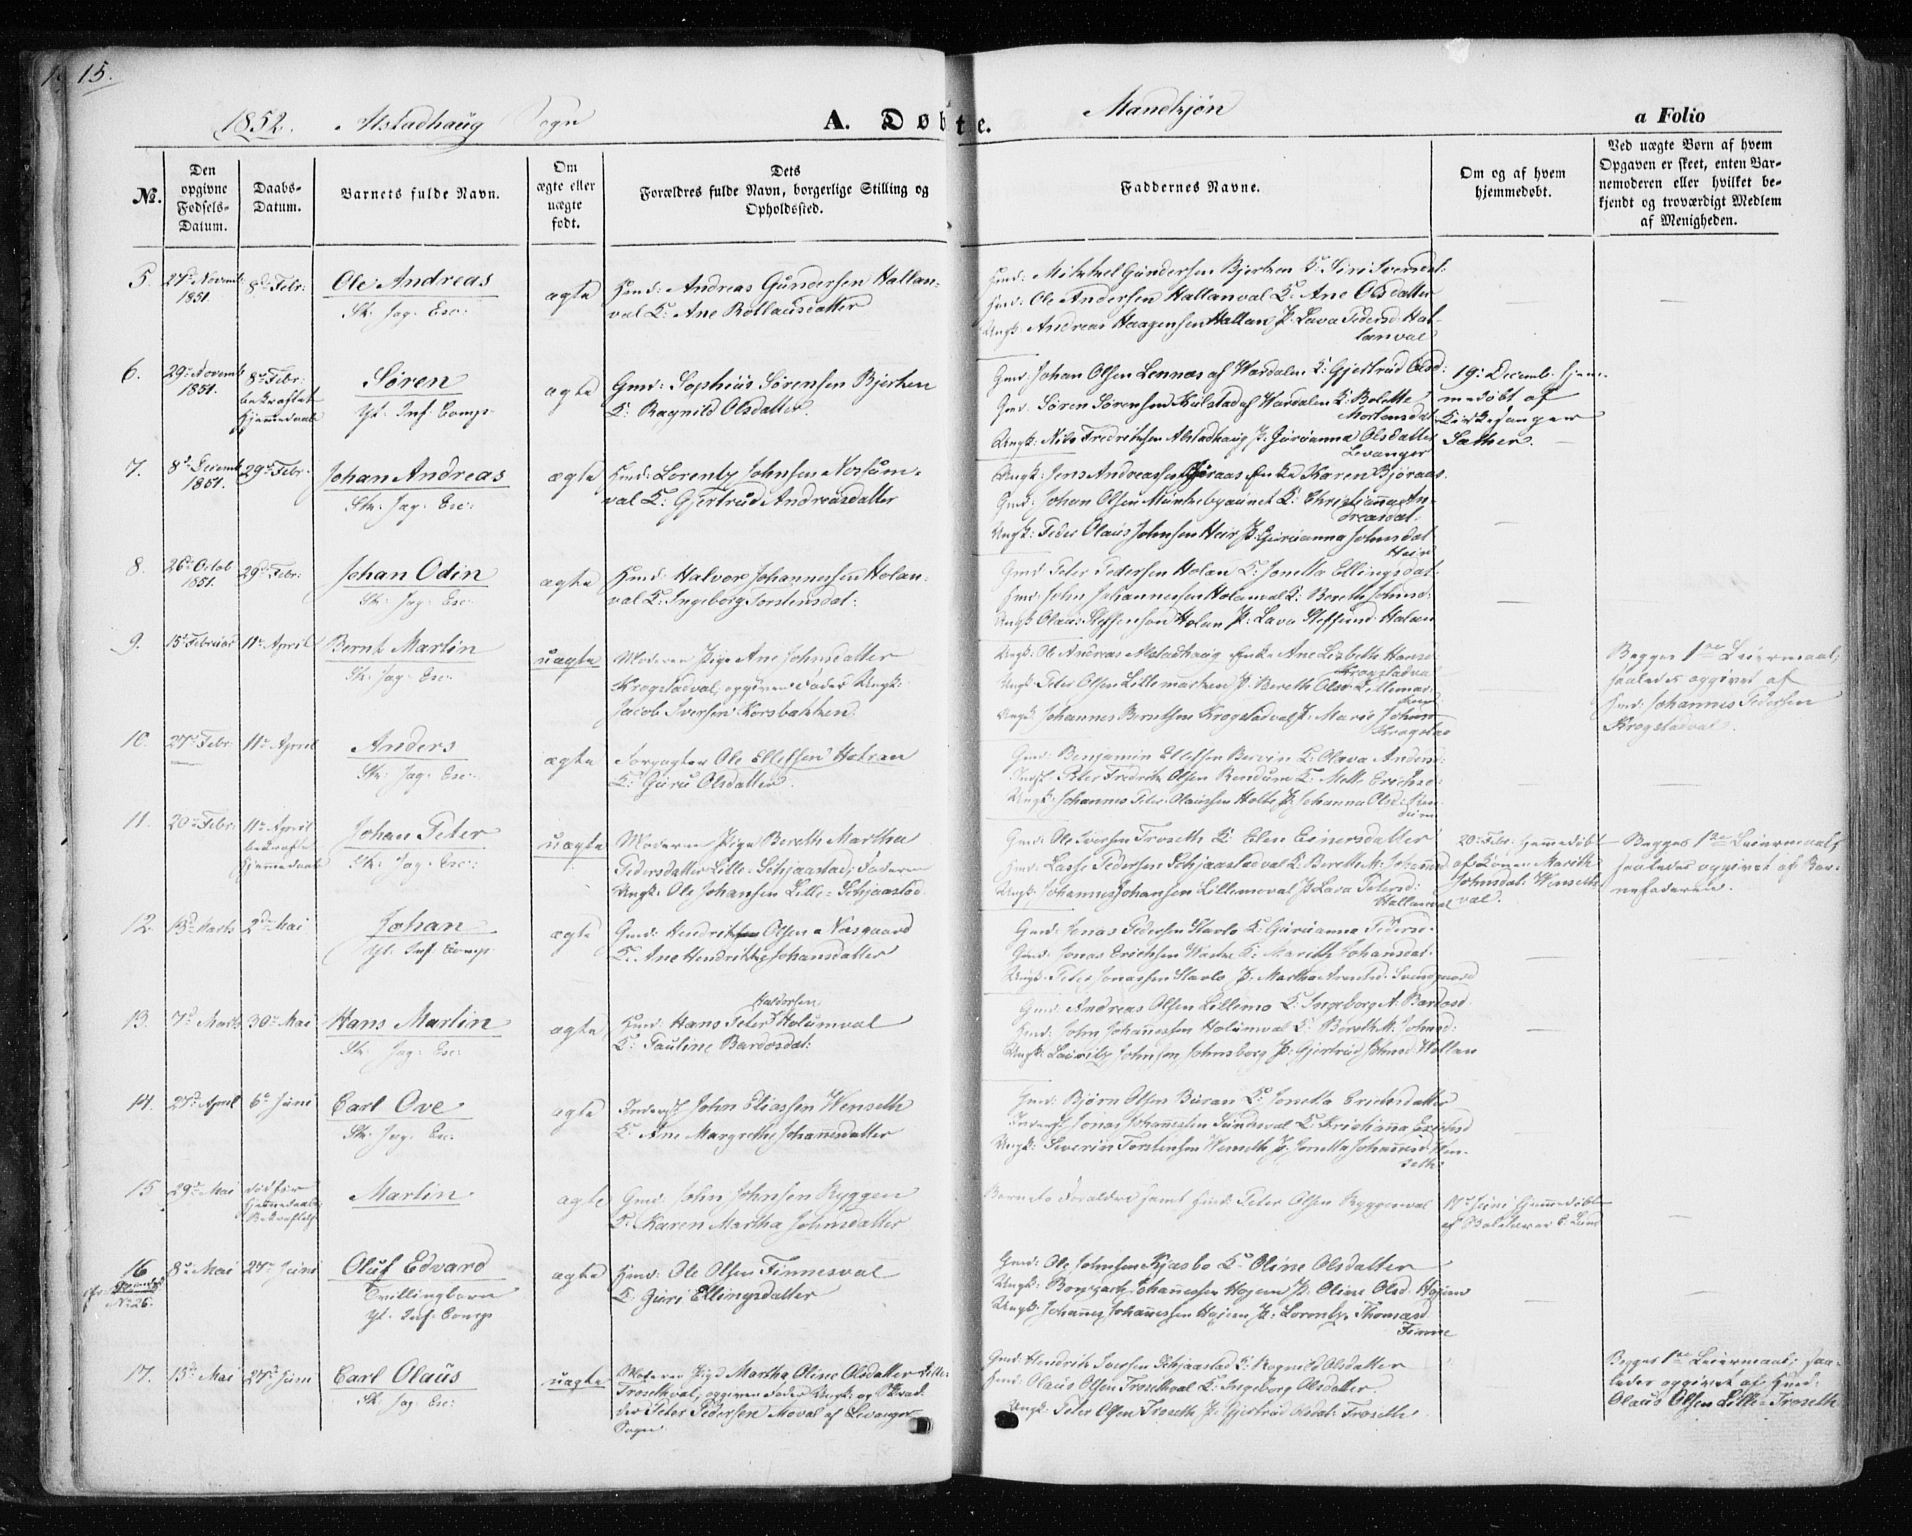 15.
1852. Alstadhaug Sogn A. Døbte. Mandkjøn a Folio
No.
Den opgivne Fødsels-Datum.
Daabs-Datum.
Barnets fulde Navn.
Om ægte eller uægte født.
Dets Forældres fulde Navn, borgerlige Stilling og Opholdssted.
Faddernes Navne.
Om og af hvem hjemmedøbt.
Ved uægte Børn af hvem Opgaven er skeet, enten Barnemoderen eller hvilket bekjendt og troværdigt Medlem af Menigheden.
5. 27de Novemb: 1851. 8de Febr: Ole Andreas
Sk: Jag: Esc:
ægte
Huusmd: Andreas Gundersen Hallan-
val K: Ane Rollausdatter
Ole Andersen Hallanval K: Ane Olsdatter
Ungk: Andreas Haagensen Hallan P: Lava Pedersd: Hal-
lanval
6. 29de Novemb 1851. 8de Febr: bekræftet Hjemmedaab
Søren
Yt. Inf. Comp.
ægte
Gmd: Sophius Sørensen Bjerken
K: Ragnild Olsdatter.
Gmd: Johan Olsen Lennæs af Værdalen K: Gjertrud Olsd:
Gmd: Søren Sørensen Kulstad af Værdalen K: Bolette
Mortensdat
Ungk: Nils Fredriksen Alstadhaug P: Guruanna Olsdatter
Levanger
19de Decemb. Hjem-
medøbt af
Kirkesanger
Sæther.
7. 8de Decemb 1851. 29de Febr. Johan Andreas
Sk: Jag: Esc:
ægte
Lorents Johnsen Nossum-
val K: Gjertrud Andreasdatter
Enke Karen Bjøraas.
Gmd: Johan Olsen Munkebyaunet K: Christianna An-
dreasdat:
Ungk: Peder Olaus Johnsen Heir P: Guruanna Johnsdat
Heir
8. 26de Octob 1851. 29de Febr: Johan Odin
Sk: Jag: Esc:
ægte
Halvor Johannessen Holan-
val K: Ingeborg Torstensdat:
Gmd: Peter Pedersen Holan K: Jonetta Ellingsdat
John Johannessen Holanval K: Bereth Johnsd:
Ungk: Olaus Steffensen Holan P: Lava Steffensd: Holan
9. 15de Februar 11te April Bernt Martin
Sk: Jag: Esc:
uægte
Moderen Pige Ane Johnsdatter
Krogstadval, opgiven Fader Ungk:
Jacob Iversen Korsbakken.
Ungk: Ole Andreas Alstadhaug Enke Ane Lisbeth Hansd
Krogstadval
Ungk: Peter Olsen Lillemarken P: Bereth Olsd Lillemar-
ken
Ungk: Johannes Berntsen Krogstadval P: Marie Johnsd
Krogstad
Begges 1ste Leiermaal;
saaledes opgivet af
Johannes Pedersen
Krogstadval.
10. 27de Febr 11te April Anders
Sk: Jag: Esc:
ægte
Forpagter Ole Ellefsen Hotran
K: Guru Olsdatter.
Gmd: Benjamin Ellefsen Børvin K: Olava Andersd:
Peter Fredrik Olsen Rendum K: Mette Erichsd:
Ungk: Johannes Peter Olaussen Holte P: Johanna Olsd:
11. 20de Febr: 11te April bekræft. Hjemmedaab
Johan Peter
Sk: Jag: Esc:
uægte
Moderen Pige Bereth Martha
Pedersdatter Lille-Schjaastad; Faderen
Ungk: Ole Johansen Lille-Schjaastad.
Gmd: Ole Iversen Troseth K: Elen Einersdatter
Lasse Pedersen Schjaastadval K: Bereth M: Johansd
Ungk: Johannes Johansen Lillemoval P: Lava Petersd:
Hallanval
20de Febr: Hjemmedøbt
af Konen Marith
Johnsdat: Wenseth-
val.
Begges 1ste Leiermaal;
saaledes opgivet af Bar-
nefaderen.
12. 13de Marts 2den Mai Johan
Yt. Inf. Comp
ægte
Gmd: Hendrik Olsen Næsgaard
K: Ane Hendrikke Johansdatter
Gmd: Jonas Pedersen Stavlo K: Guruanna Pedersd.
Gmd: Jonas Erichsen K: Marith Johansdat:
Ungk: Peter Jonassen Stavlo P: Martha Arntsd.
13. 7de Marts 30te Mai Hans Martin
Sk: Jag: Esc:
ægte
Haldorsen
Hans Peter Holumval
K: Pauline Bardosdat:
Gmd: Andreas Olsen Lillemo K: Ingeborg A: Bardosd
John Johannessen Holumval K: Bereth M: Johnsd:
Ungk: Laurits Johnsen Johnsborg P: Gjertrud Johnsd: Hollan
14. 27de April 6te Juni Carl Ove
Sk: Jag: Esc:
ægte
Inderst John Eliassen Wenseth
K: Ane Margrethe Johannesdatter
Gmd: Bjørn Olsen Buran K: Jonetta Erichsdatter
Inderst Jonas Johannessen Sundsval K: Kristianna Erichsd
Ungk: Severin Torstensen Wenseth P: Jonetta Johannesd: Wen-
seth.
15 29de Mai død før Hjemmedaabs Bekræftelse
Martin
ægte
Gmd: John Johnsen Ryggen
K: Karen Martha Johnsdatter
Barnets Forældre samt Peter Olsen Ryggenval
Juni Hjemmedøbt
16 8de Mai 27de Juni Oluf Edvard
No 26.
Tvillingbarn
Yt. Inf. Comp
ægte
Ole Olsen Finnesval
K: Guri Ellingsdatter
Gmd: Ole Johnsen Kjæsbo K: Oline Olsdatter
Ungk: Johannessen Hojem P: Oline Olsd: Hojem
Ungk: Johannes Johannessen Hojem P: Lorentse Thomasd
Finne
17. 13de Mai 27de Juni Carl Olaus
Sk: Jag: Esc:
uægte
Moderen Pige Martha Oline Olsdatter Lille-
Trosethval, opgiven Fader Ungk: og
Peter Pedersen Moval af Levanger
Sogn.
Gmd: Hendrik Iversen Schjaastad K: Ragnild Olsdatter
Olaus Olsen Trosethval K: Ingeborg Olsdatter.
Ungk: Peter Olsen Troseth P: Gjertrud Olsdat: Troseth
Begges 1ste Leiermaal; saa-
ledes opgivet af
Olaus Olsen Lille-Troseth